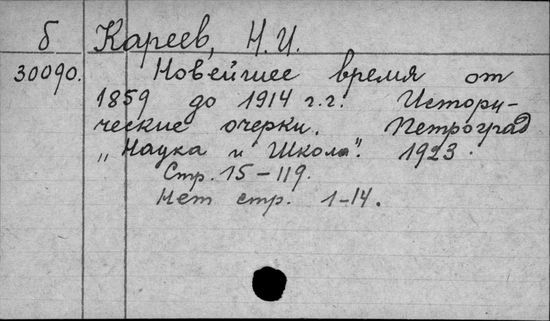 б Кареев, Н. И.
30090. Новейшее время от
1859 до 1914 г.г. Истори-
ческие очерки. Петроград
„Наука и Школа". 1923.
Стр. 15-119.
Нет стр. 1-14.